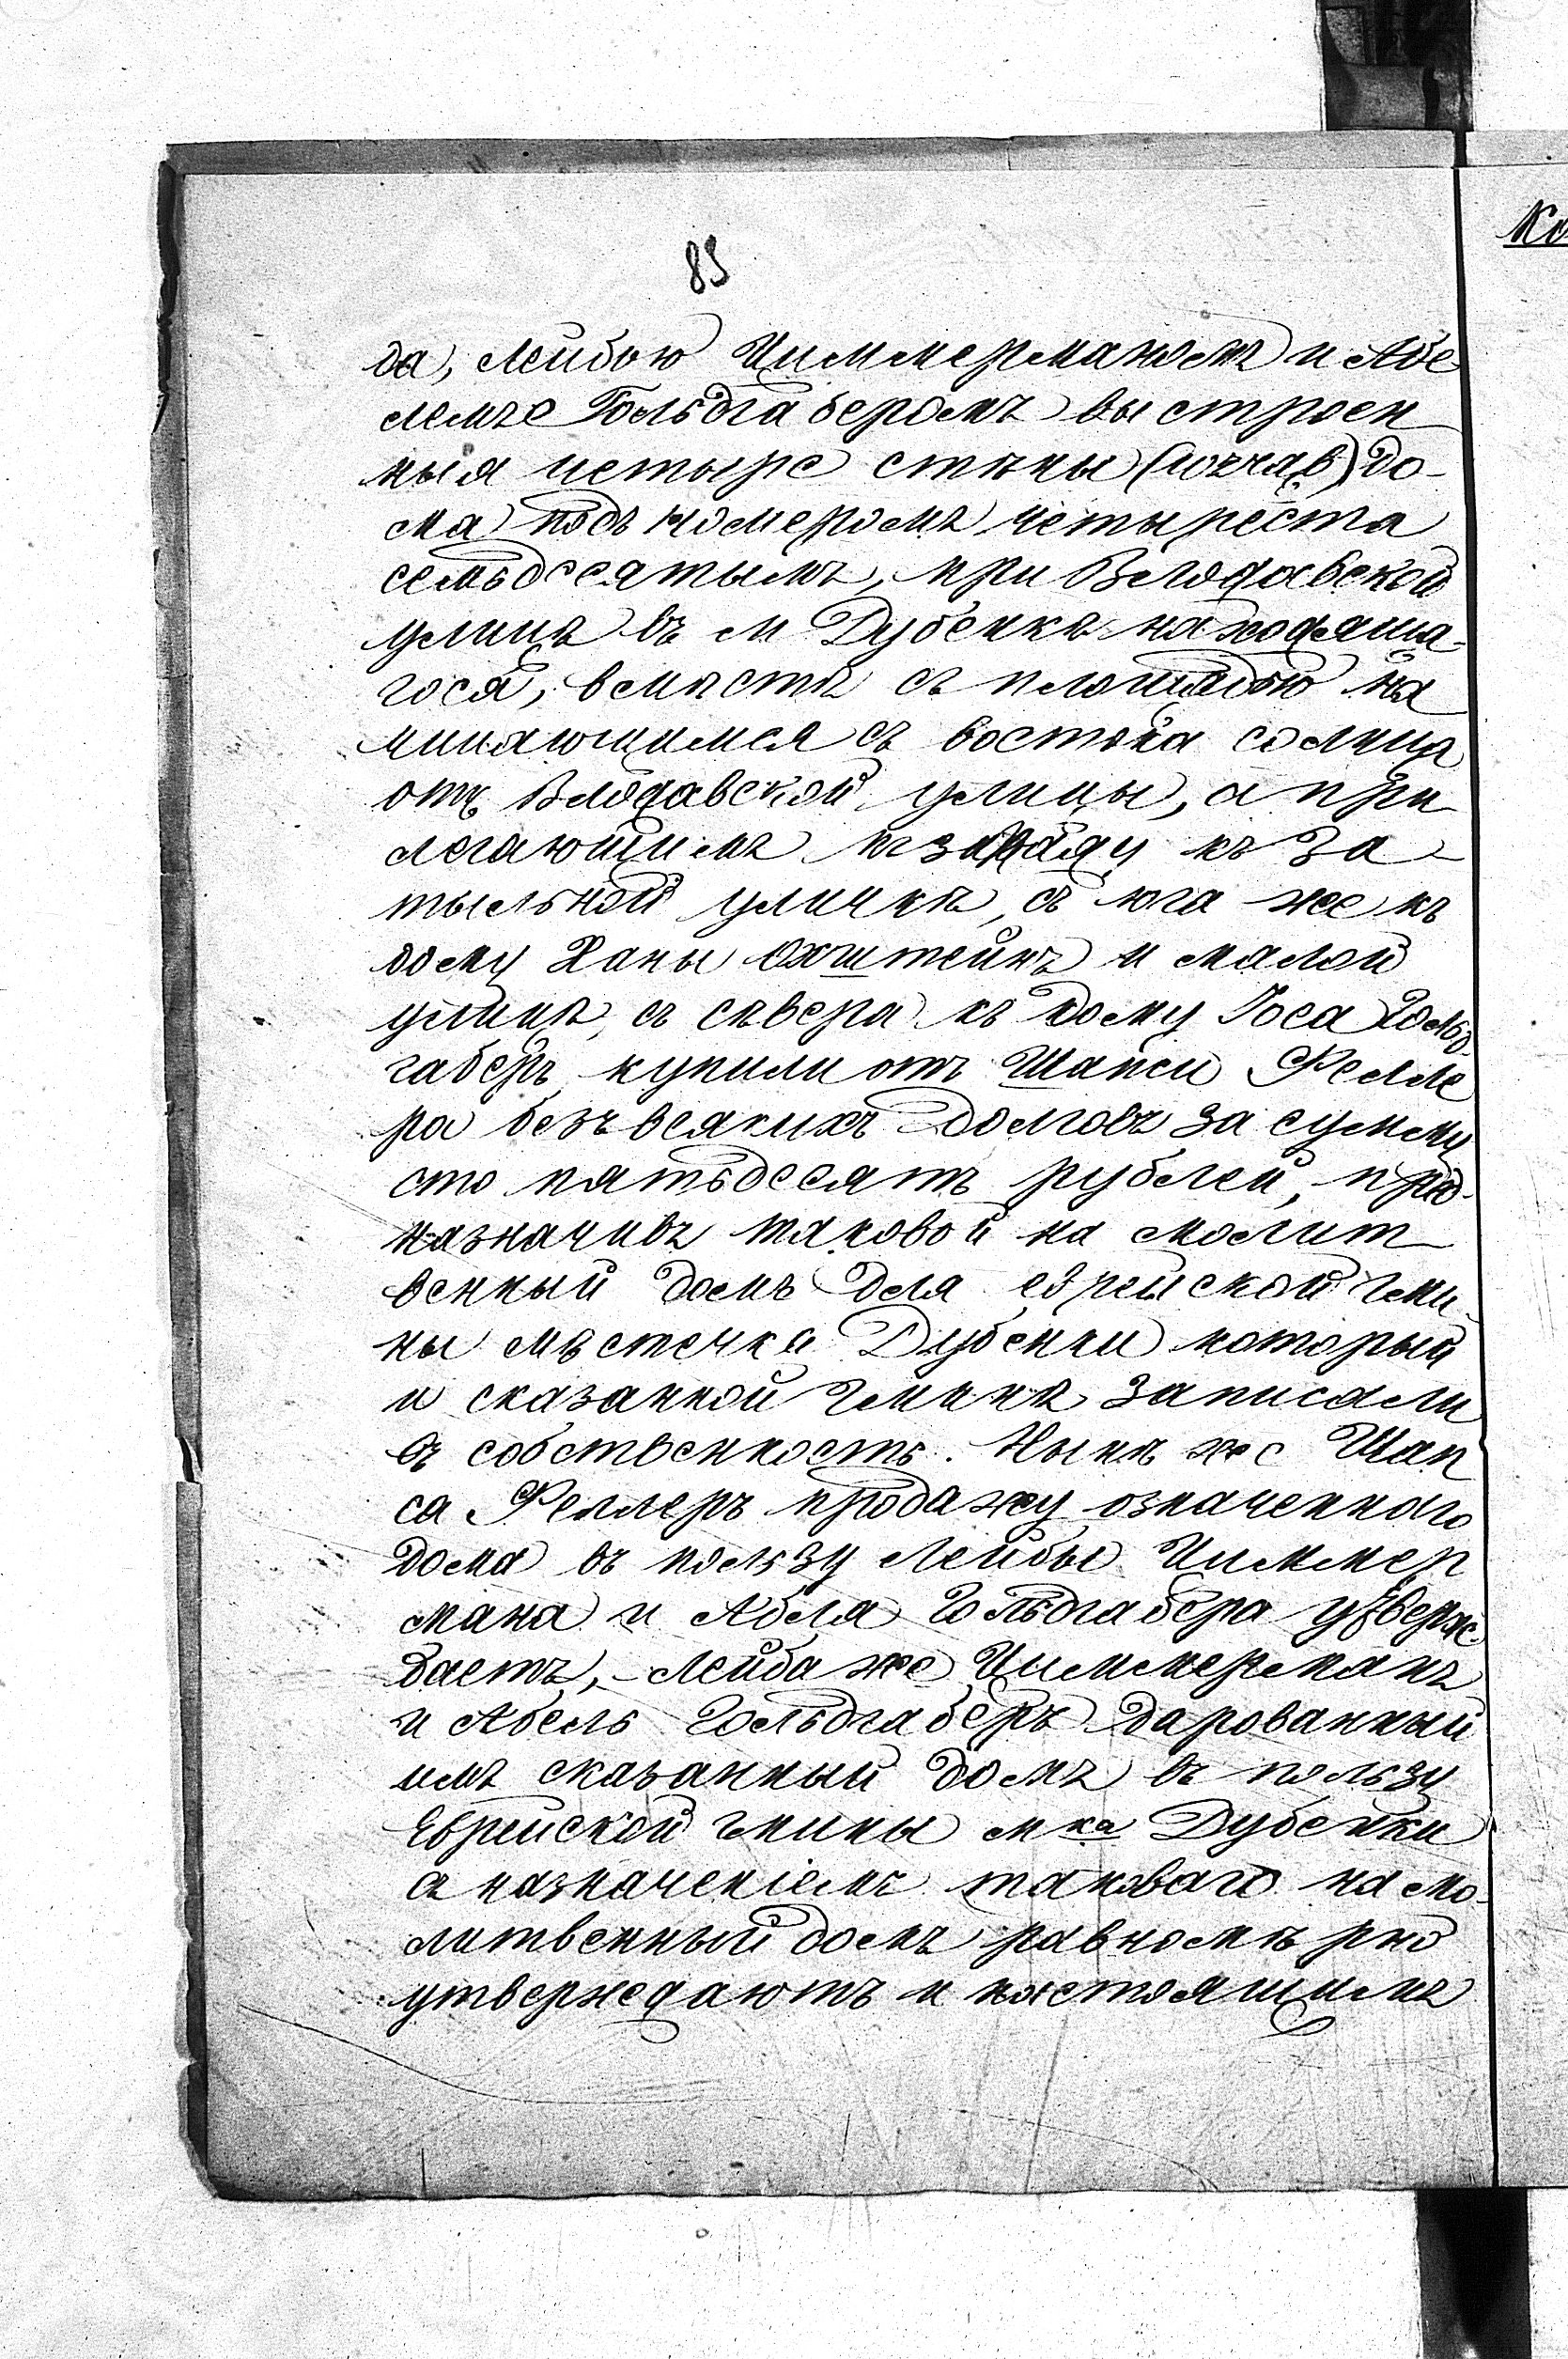 85
Ко
да, Лейбою Циммерманомъ и Абе
лемъе Гольдгаберомъ выстроен
ныя четыре стѣны до-
ма подъ номеромъ четыреста
семьдесятымъ, при Влодавской
улицѣ въ м Дубенкѣ находяща-
гося, вмѣстѣ съ площадью на
чинающимся съ востока солнца
отъ Влодавской улицы, а при
легающимъ къ западу къ За-
тыльной уличкѣ, съ юга же къ
дому Ханы Охштейнъ и малой
улицѣ, съ сѣвера къ дому Іоса Гольд-
габеръ купили отъ Шапси Фелле
ра безъ всякихъ долговъ за сумму
сто пятьдесятъ рублей, пред-
назначивъ таковой на молит
венный домъ для еврейской гми-
ны мѣстечка Дубенки который
и сказанной гминѣ записали
въ собственность. Нынѣ же Шап
са Феллеръ продажу означеннаго
дома въ пользу Лейбы Циммер
мана и Абеля Гольдгабера утверж-
даетъ, - Лейба же Циммерманъ
и Абель Гольдгаберъ дарованный
имъ сказанный домъ въ пользу
Еврейской гмины мка Дубенки
съ назначеніемъ таковаго на мо-
литвенный домъ равномѣрно
утверждаютъ и настоящимъ